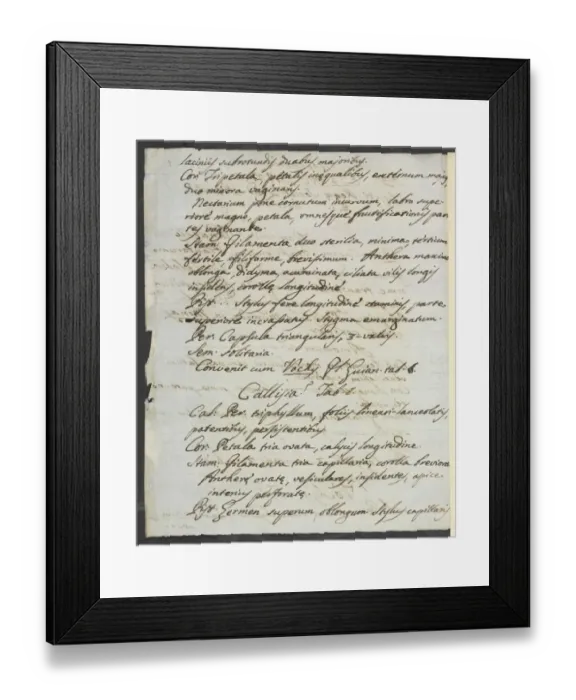 laciniis subrotundis duabus majoribus.
Cor. Tripetala: petalis inæqualibus, extimum majus
duo minora vaginans.
Nectarium fine cornutum incurvum, labro supe-
riore magno, petala, omnesque fructificationis par
tes vaginantes.
Stam. filamenta duo sterilia, minima, tertium
fertile filiforme, brevissimum. Anthera maxima
oblonga didyma, acuminata, ciliata vilis longis
insidens, corollæ longitudine
Pist. Stylus fere longitudine staminis, parte
superiore incrassatus. Stigma emarginatum.
Per. Capsula triangularis, 3-valvis.
Sem. Solitaria.
Convenit cum Guian. tab. 6.
Callisia Tab.
Cal: Per. triphyllum, foliis lineari-lanceolatis,
patentibus, persistentibus
Cor. Petala tria ovata, calycis longitudine
Stam. filamenta tria capillaria, corolla breviora
Antheræ ovatæ, vesiculares, insidentes, apice
interius perforatæ.
Pist. Germen superum oblongum Stylus capillaris